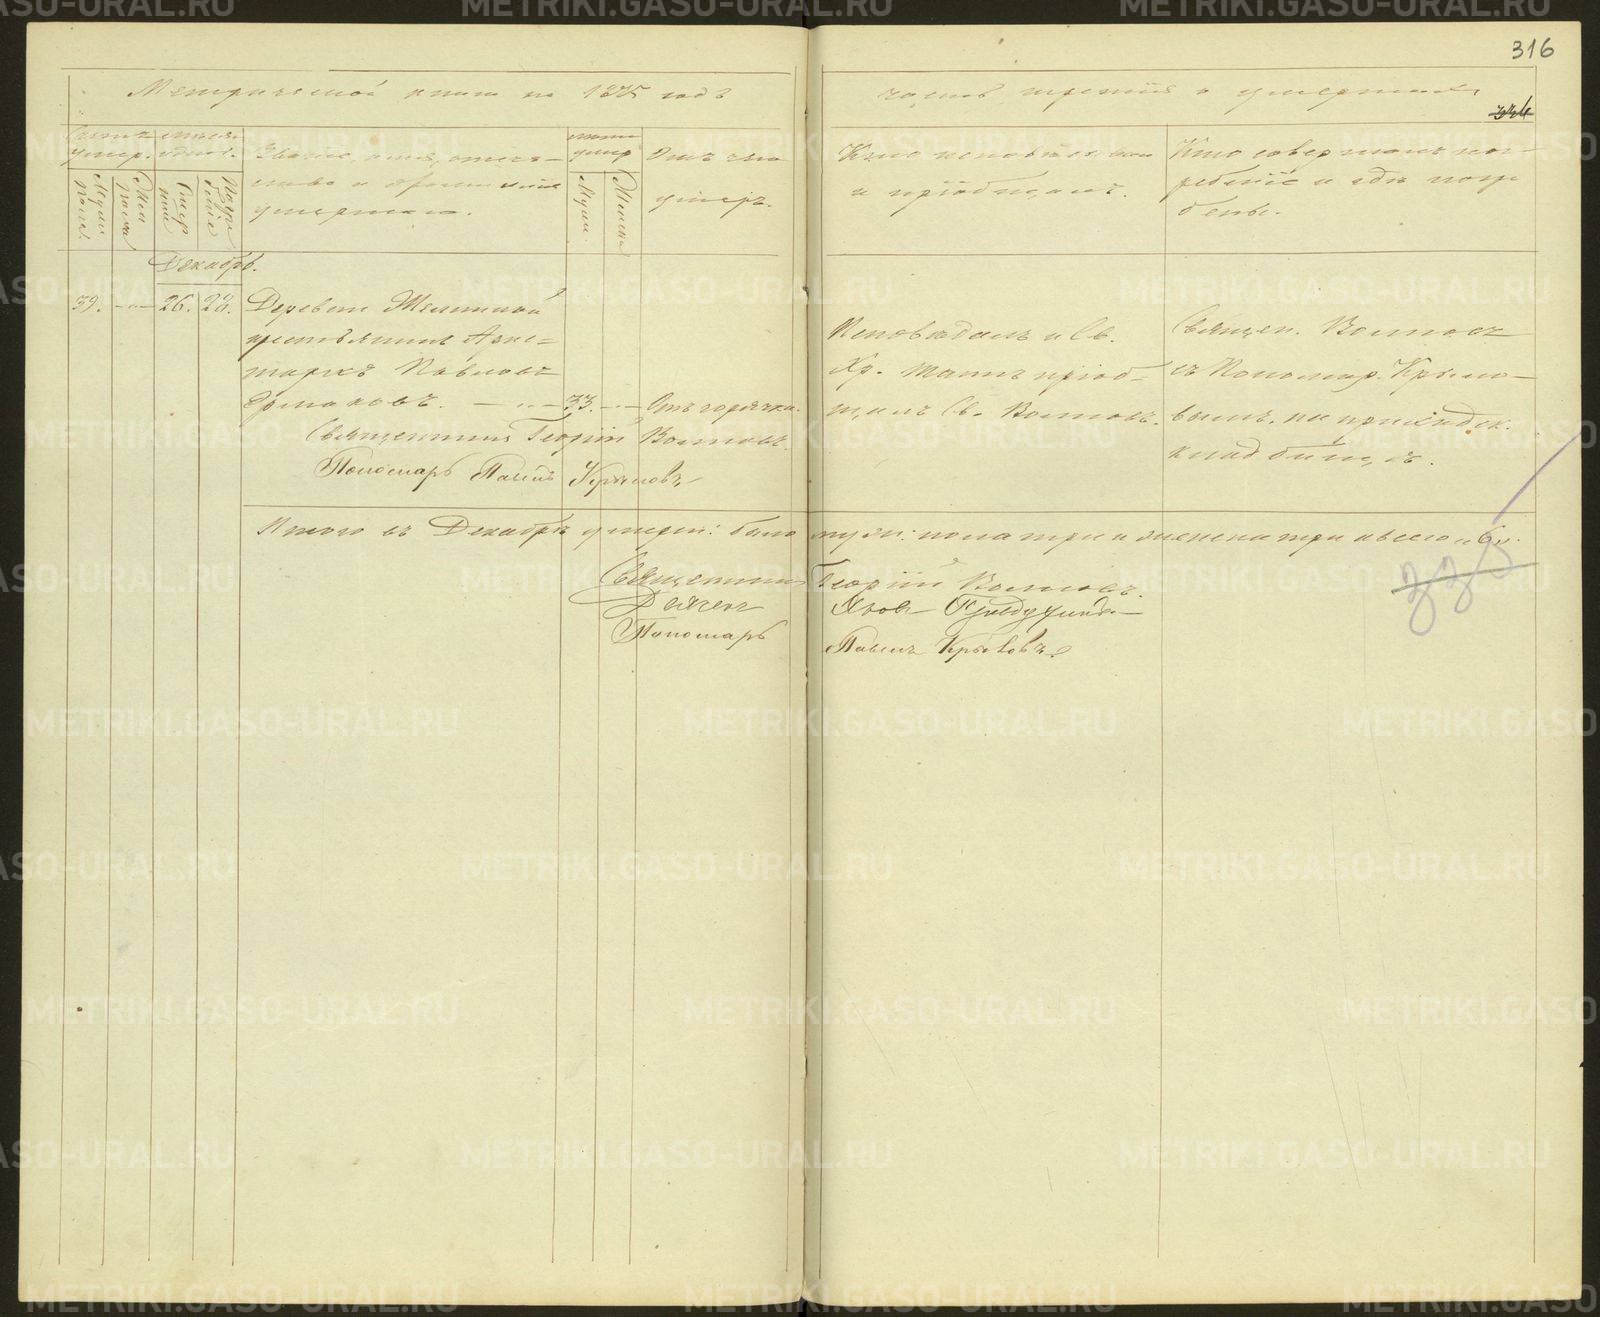 316
Метрической книги на 1875 годъ
часть третія о умершихъ
Счетъ умер.
Мужеска пола.
Женска пола
Мѣсяцъ и день.
Смерти
Погребенія
Званіе, имя, отчество и фамилія умершаго.
Лѣта умер
Муж.
Женск.
Отъ чего умеръ.
Кто исповѣдывалъ и пріобщалъ.
Кто совершалъ погребеніе и гдѣ погребены.
Декабрь.
39. — 26. 28. Деревни
крестьянинъ Арис=
тархъ Павловъ
Ермаковъ. — 33. — Отъ горячки.
Исповѣдалъ и Св.
Хр. Таинъ пріоб-
щилъ Св. Волковъ.
Священ. Волковъ
съ Пономар. Крыло-
вымъ, на приходск.
кладбищѣ.
Священникъ Георгій Волковъ.
Пономарь Павелъ Крыловъ
Итого въ Декабрѣ умерш: было муж: пола три и женска три а всего „6".
Священникъ Георгій Волковъ.
Діаконъ Яковъ
Пономарь Павелъ Крыловъ